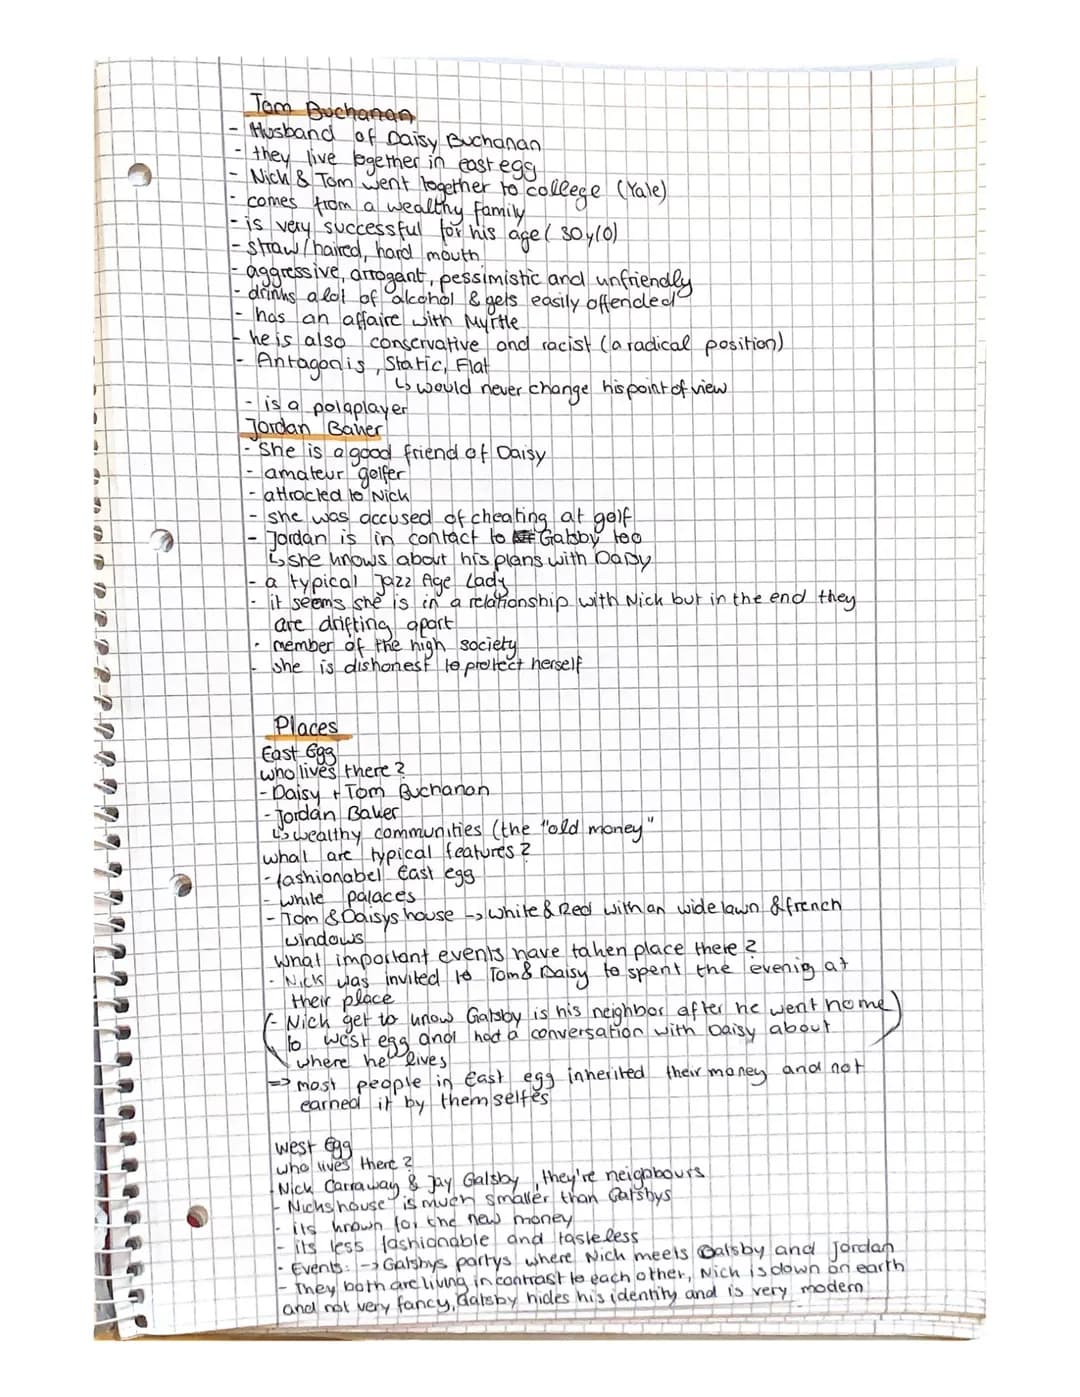 Tom Buchanan
- Husband of Daisy Buchanan
- they live together in east egg
- Nick & Tom went together to college (Yale)
- comes from a wealthy family
- is very successful for his age (30y/o)
- straw/haired, hard mouth
- aggressive, arrogant, pessimistic and unfriendly
- drinks a lot of alcohol & gets easily offended
- has an affaire with Myrtle
- he is also conservative and racist (a radical position)
- Antagonis, Static, Flat
↳ would never change his point of view
- is a poloplayer
Jordan Baker
- She is a good friend of Daisy
- amateur golfer
- attracted to Nick
- she was accused of cheating at golf
- Jordan is in contact to Gatsby too
↳ she knows about his plans with Daisy
- a typical Jazz Age Lady
- it seems she is in a relationship with Nick but in the end they
are drifting apart
- member of the high society
- she is dishonest to protect herself
Places
East Egg
who lives there?
- Daisy + Tom Buchanan
- Jordan Baker
↳ wealthy communities (the "old money"
what are typical features?
- fashionabel East egg
- white palaces
- Tom & Daisys house -> White & Red with an wide lawn & french
windows
what important events have taken place there?
- Nick was invited to Tom & Daisy to spent the evenig at
their place
(- Nick get to know Gatsby is his neighbor after he went home)
to west egg and had a conversation with Daisy about
where he lives
=> most people in East egg inherited their money and not
earned it by themselfes
West Egg
who lives there?
- Nick Carraway & Jay Gatsby, they're neighbours
- Nicks house is much smaller than Gatsbys
- its known for the new money
- its less fashionable and tasteless
- Events: -> Gatsbys partys where Nick meets Gatsby and Jordan
- They both are living in contrast to each other, Nick is down on earth
and not very fancy, Gatsby hides his identity and is very modern